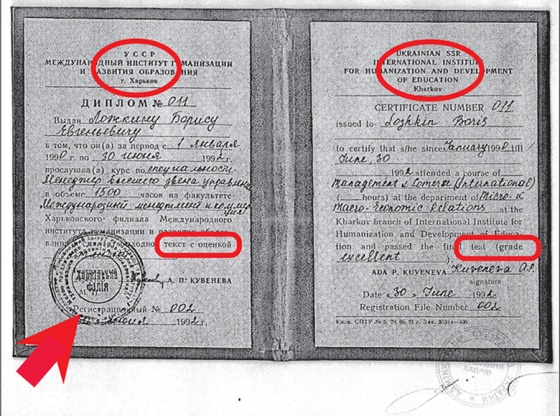 УССР
МЕЖДУНАРОДНЫЙ ИНСТИТУТ ГУМАНИЗАЦИИ
И РАЗВИТИЯ ОБРАЗОВАНИЯ
г. Харьков
ДИПЛОМ № 011
Выдан Ложкину Борису
Евгеньевичу
в том, что он(а) за период с 1 Января
1990 г. по 30 июня 1992 г.
прослушал(а) курс по специальности
Менеджер высшего звена управления
в объеме 1500 часов на факультете
Международный менеджмент и коммерция
Харьковского филиала Международного
института гуманизации и развития
текст с оценкой
А. П. КУВЕНЕВА
Регистрационный № 002
1992 г.
UKRAINIAN SSR
INTERNATIONAL INSTITUTE
FOR HUMANIZATION AND DEVELOPMENT
OF EDUCATION
Kharkov
CERTIFICATE NUMBER 011
issued to Lozhkin Boris
to certify that s/he sinces January 1990 till
June 30
1992 attended a course of
management & Comerce (International)
( hours) at the department of Micro &
Macro-Economic Relations at the
Kharkov branch of International Institute for
Humanization and Development of Educa-
tion and passed the final test (grade
excellent )
ADA P. KUVENEVA Kuveneva A.P.
signature
Date «30» June 1992
Registration File Number 002